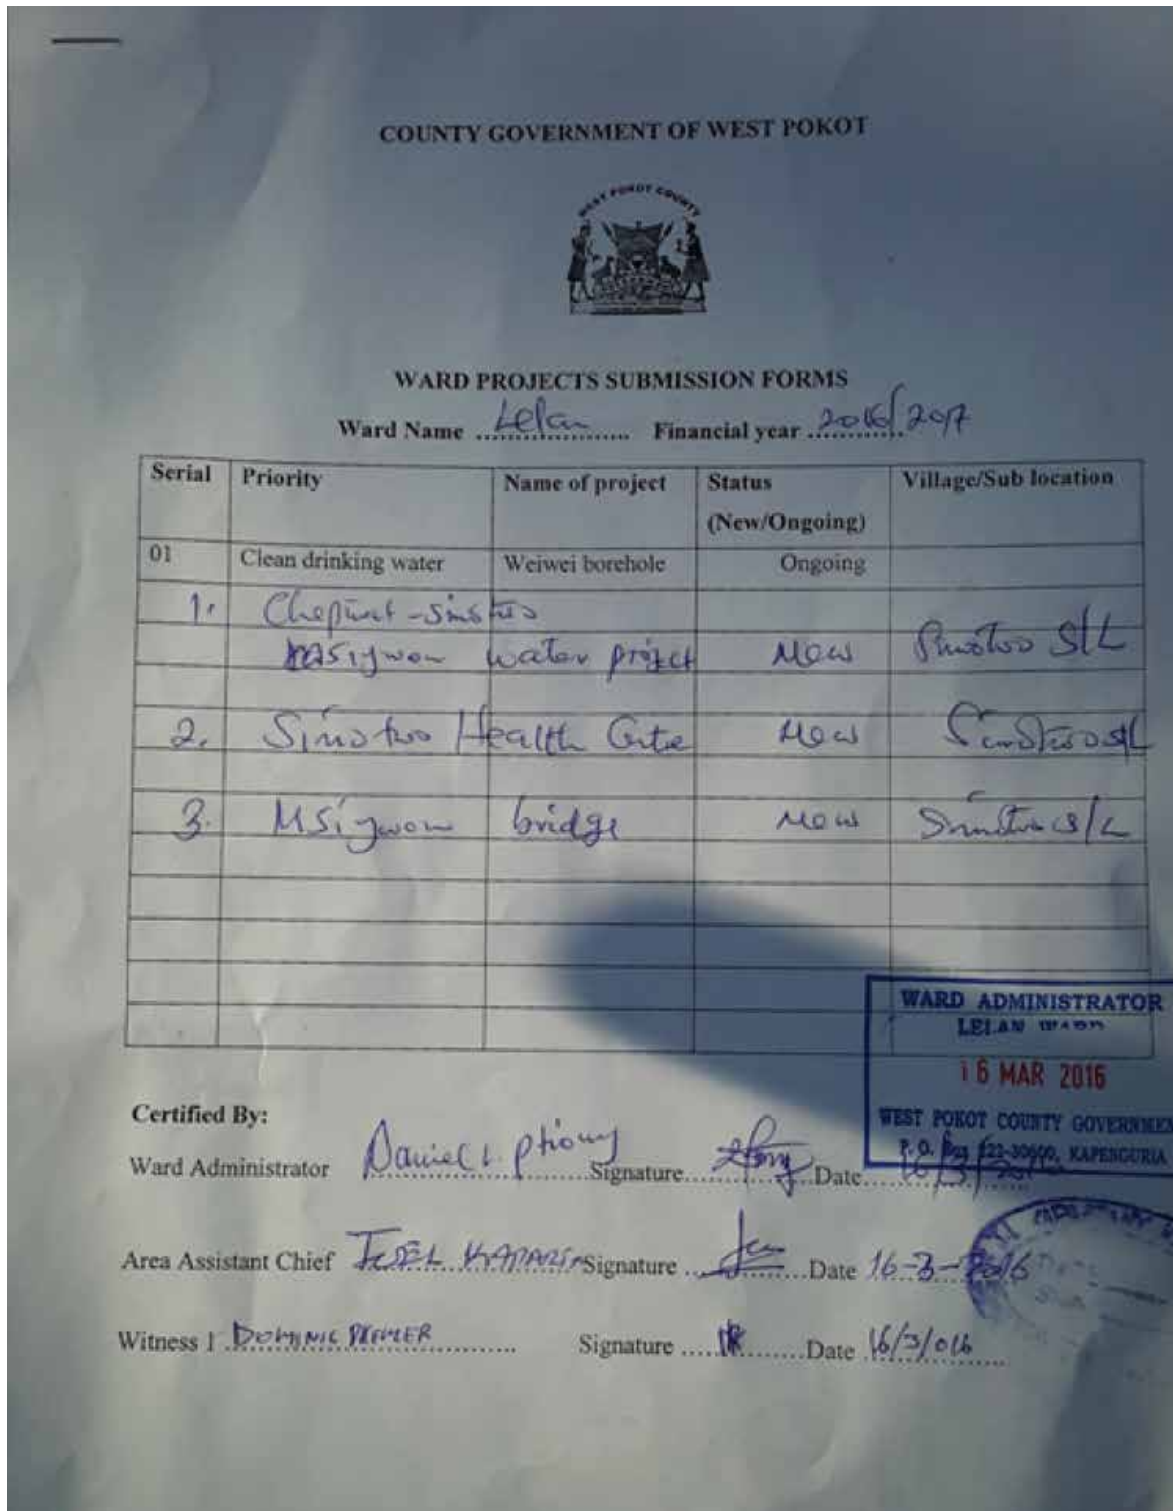 COUNTY GOVERNMENT OF WEST POKOT
WEST POKOT COUNTY
WARD PROJECTS SUBMISSION FORMS
Ward Name Lelan Financial year 2016/2017
Serial Priority Name of project Status (New/Ongoing) Village/Sub location
01 Clean drinking water Weiwei borehole Ongoing
1. -Sinotwo
water project New S/L
2. Sinotwo Health New S/L
3. Msigwon bridge New S/L
WARD ADMINISTRATOR
LELAN WARD
16 MAR 2016
WEST POKOT COUNTY GOVERNMEN
P.O. Box 222-30600, KAPENGURIA
Certified By:
Ward Administrator Daniel L. Signature Date
Area Assistant Chief Signature Date 16-3-2016
Witness 1 DOMINIC Signature Date 16/3/016